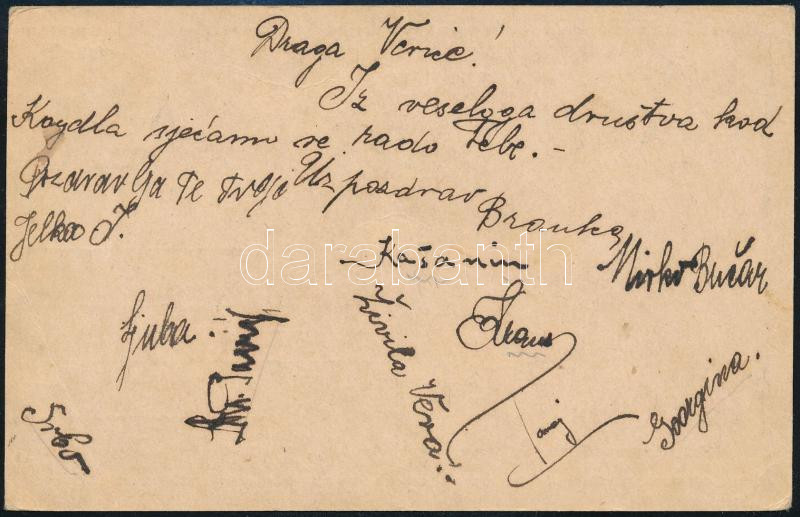 Draga Verice!
Iz veseloga društva kod
Kaydla sjećam se rado Tebe. –
Uz pozdrav
Branka
Pozdravlja Te tvoja
Jelka J.
Kašanin
Mirko Bučar
Ljuba
Živila Vera!
Georgina.
Srbo
darabanth